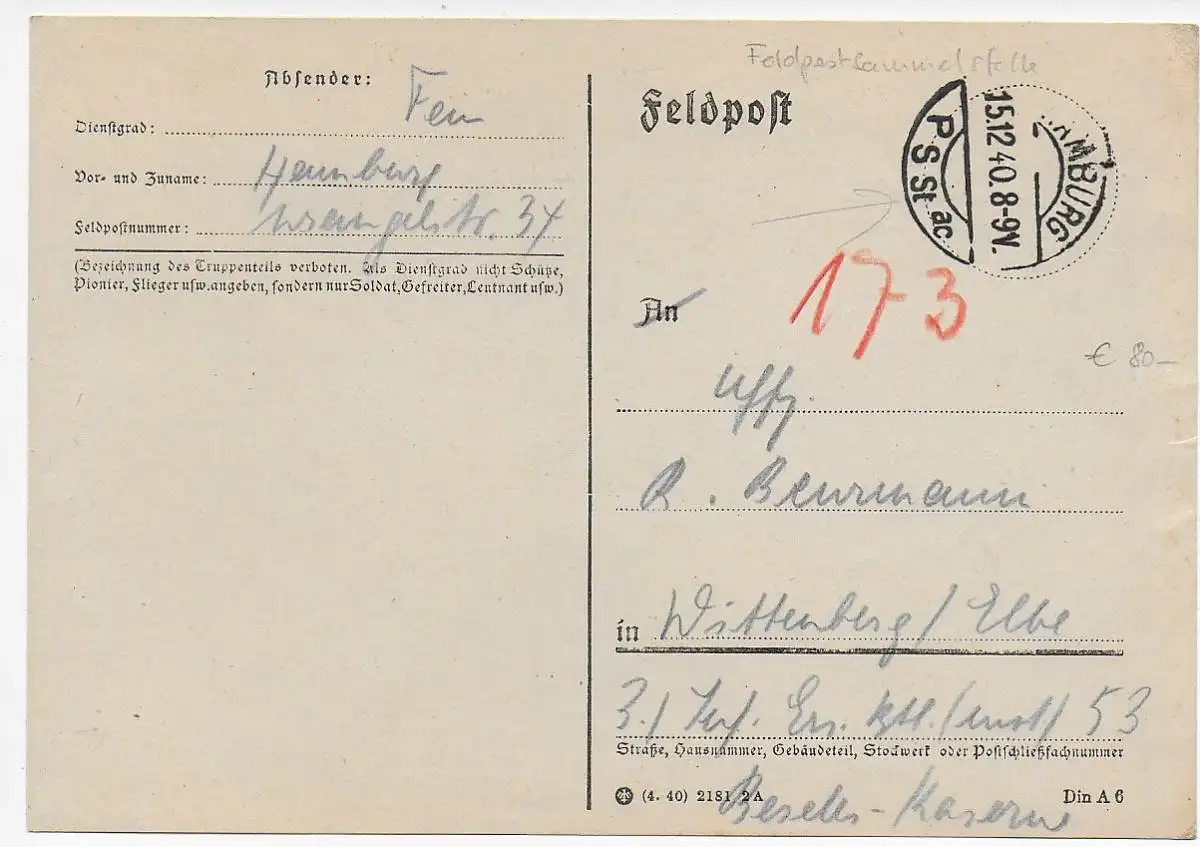 Absender:
Fein
Dienstgrad:
Hamburg
Vor- und Zuname:
Wrangelstr. 34
Feldpostnummer:
(Bezeichnung des Truppenteils verboten. Als Dienstgrad nicht Schütze,
Pionier, Flieger usw. angeben, sondern nur Soldat, Gefreiter, Leutnant usw.)
Feldpostsammelstelle
Feldpost
MBURG
15.12.40.8-9V.
P S St ac
173
An
€ 80-
Uffz.
R. Beurmann
in Wittenberg / Elbe
3./ Inf. Ers. Btl. (mot) 53
Straße, Hausnummer, Gebäudeteil, Stockwerk oder Postschließfachnummer
(4. 40) 2181 2 A
Din A 6
Kaserne